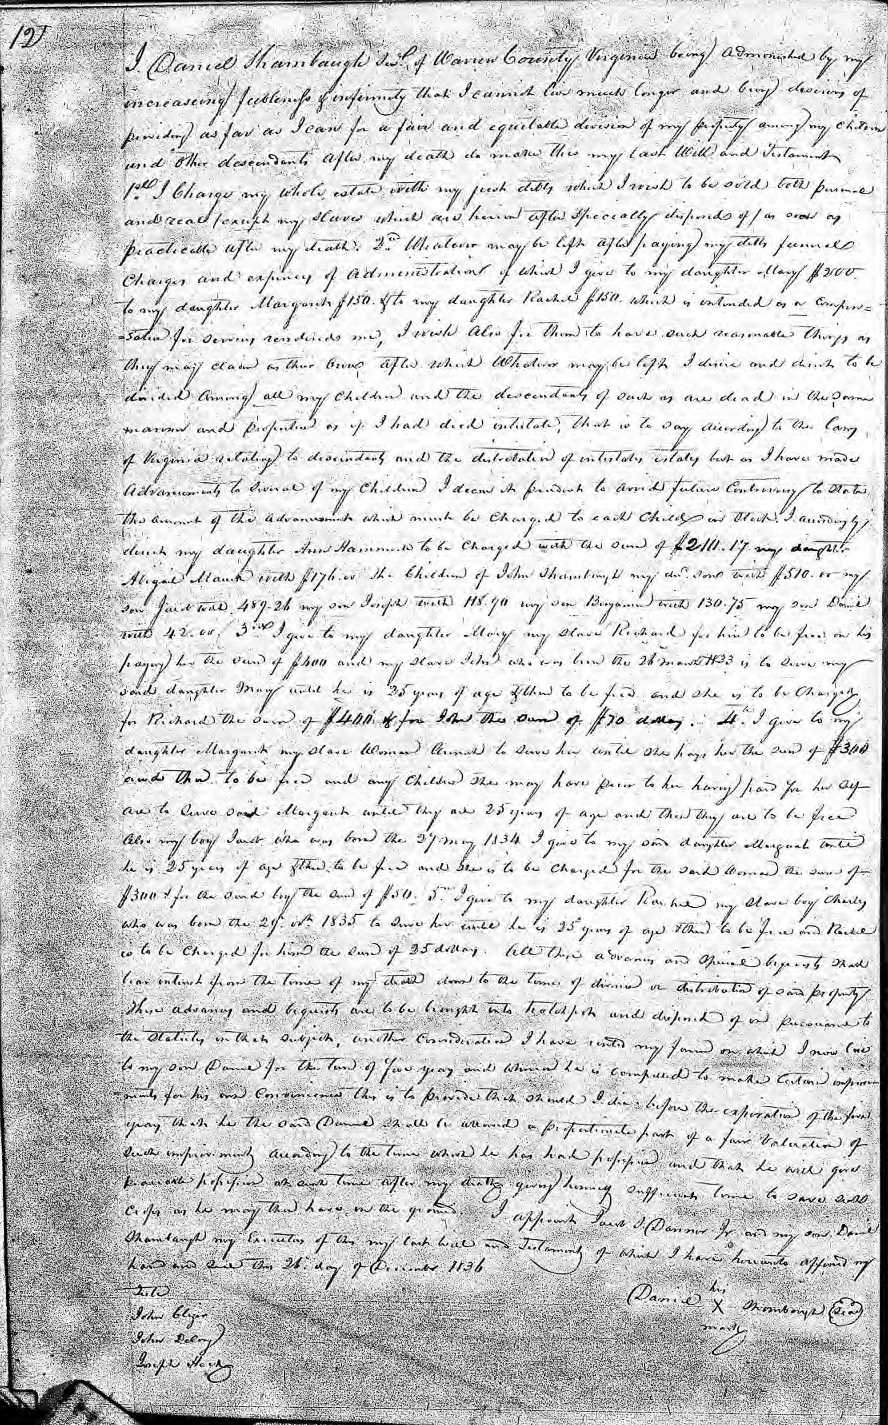 121
I Daniel Shambaugh Senr. of Warren County Virginia being admonished by my
increasing feebleness & infirmity that I cannot live much longer and being desirous of
providing as far as I can for a fair and equitable division of my property among my children
and other descendants after my death do make this my last Will and Testament
1st I Charge my whole estate with my just debts which I wish to be sold both personal
and real (except my slaves which are herein after specially disposed of) as soon as
practicable after my death. 2nd Whatever may be left after paying my debts funeral
Charges and expenses of Administration of which I give to my daughter Mary $200.
to my daughter Margaret $150. & to my daughter Rachel $150. which is intended as a compen=
=sation for services rendered me, I wish also for them to have such reasonable things as
they may claim as their own, after which Whatever may be left I desire and direct to be
divided among all my Children and the descendants of such as are dead in the same
manner and proportion as if I had died intestate, that is to say according to the laws
of Virginia relating to descendants and the distribution of intestates estates but as I have made
Advancements to several of my Children I deem it prudent to avoid future Controversy to state
the amount of the advancements which must be Charged to each Child or Stock. I accordingly
direct my daughter Ann Hammock to be charged with the sum of $210.17 my daughter
Abigail Mauk with $176.00 the Children of John Shambaugh my decd. son with $510.00 my
son Jacob with 489.26 my son Joseph with 118.90 my son Benjamin with 130.75 my son Daniel
with 42.00 / 3rd I give to my daughter Mary my slave Richard for him to be free on his
paying her the sum of $400 and my slave John who was born the 26 March 1833 is to serve my
said daughter Mary until he is 25 years of age & then to be free and she is to be Charged
for Richard the sum of $400 & for John the sum of $70 dollars. 4th I give to my
daughter Margaret my slave Woman to serve her until she pays her the sum of $300
and then to be free and any Children she may have prior to her having paid for her self
are to serve said Margaret until they are 25 years of age and then they are to be free
Also my boy Jacob who was born the 27 May 1834 I give to my said daughter Margaret until
he is 25 years of age & then to be free and she is to be Charged for the said Woman the sum of
$300 & for the said boy the sum of $50. 5th I give to my daughter Rachel my slave boy Charles
who was born the 29 1835 to serve her until he is 25 years of age & then to be free and Rachel
is to be Charged for him the sum of 25 dollars. All these advances and special bequests shall
bear interest from the time of my death down to the time of division or distribution of said property.
These advances and bequests are to be brought into hotchpot and disposed of in pursuance to
the statutes on that subject, another Consideration I have rented my farm on which I now live
to my son Daniel for the term of five years and whereas he is compelled to make certain improve
=ments for his own Convenience this is to provide that should I die before the expiration of the five
years that he the said Daniel shall be allowed a proportionate part of a fair Valuation of
such improvements according to the time which he has had possession and that he will give
peaceable possession at such time after my death giving himself sufficient time to save such
Crops as he may then have in the ground. I appoint Jacob Danner Jr. and my son Daniel
Shambaugh my Executors of this my last will and Testament of which I have hereunto affixed my
hand and seal this 26th day of December 1836
Teste
his
Daniel X Shambaugh (Seal)
mark
John
John
Joseph